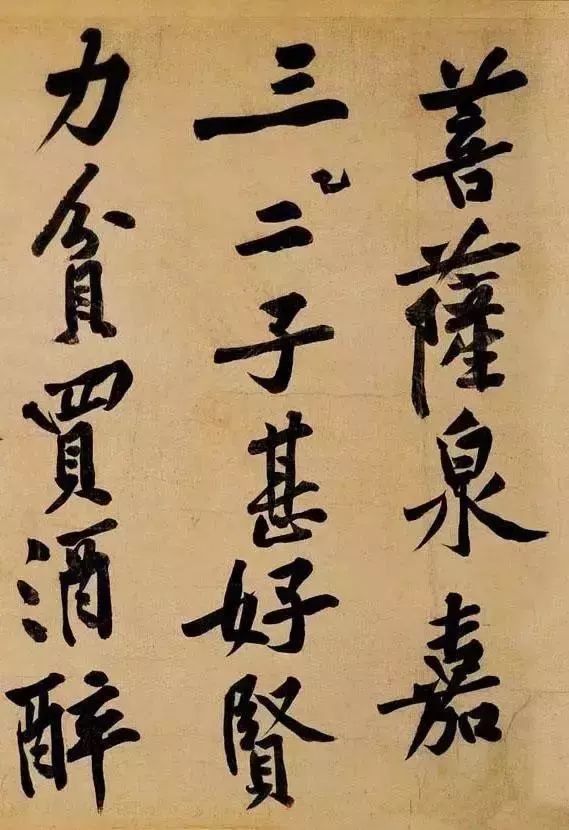 菩薩泉嘉
三二子甚好賢
力貧買酒醉